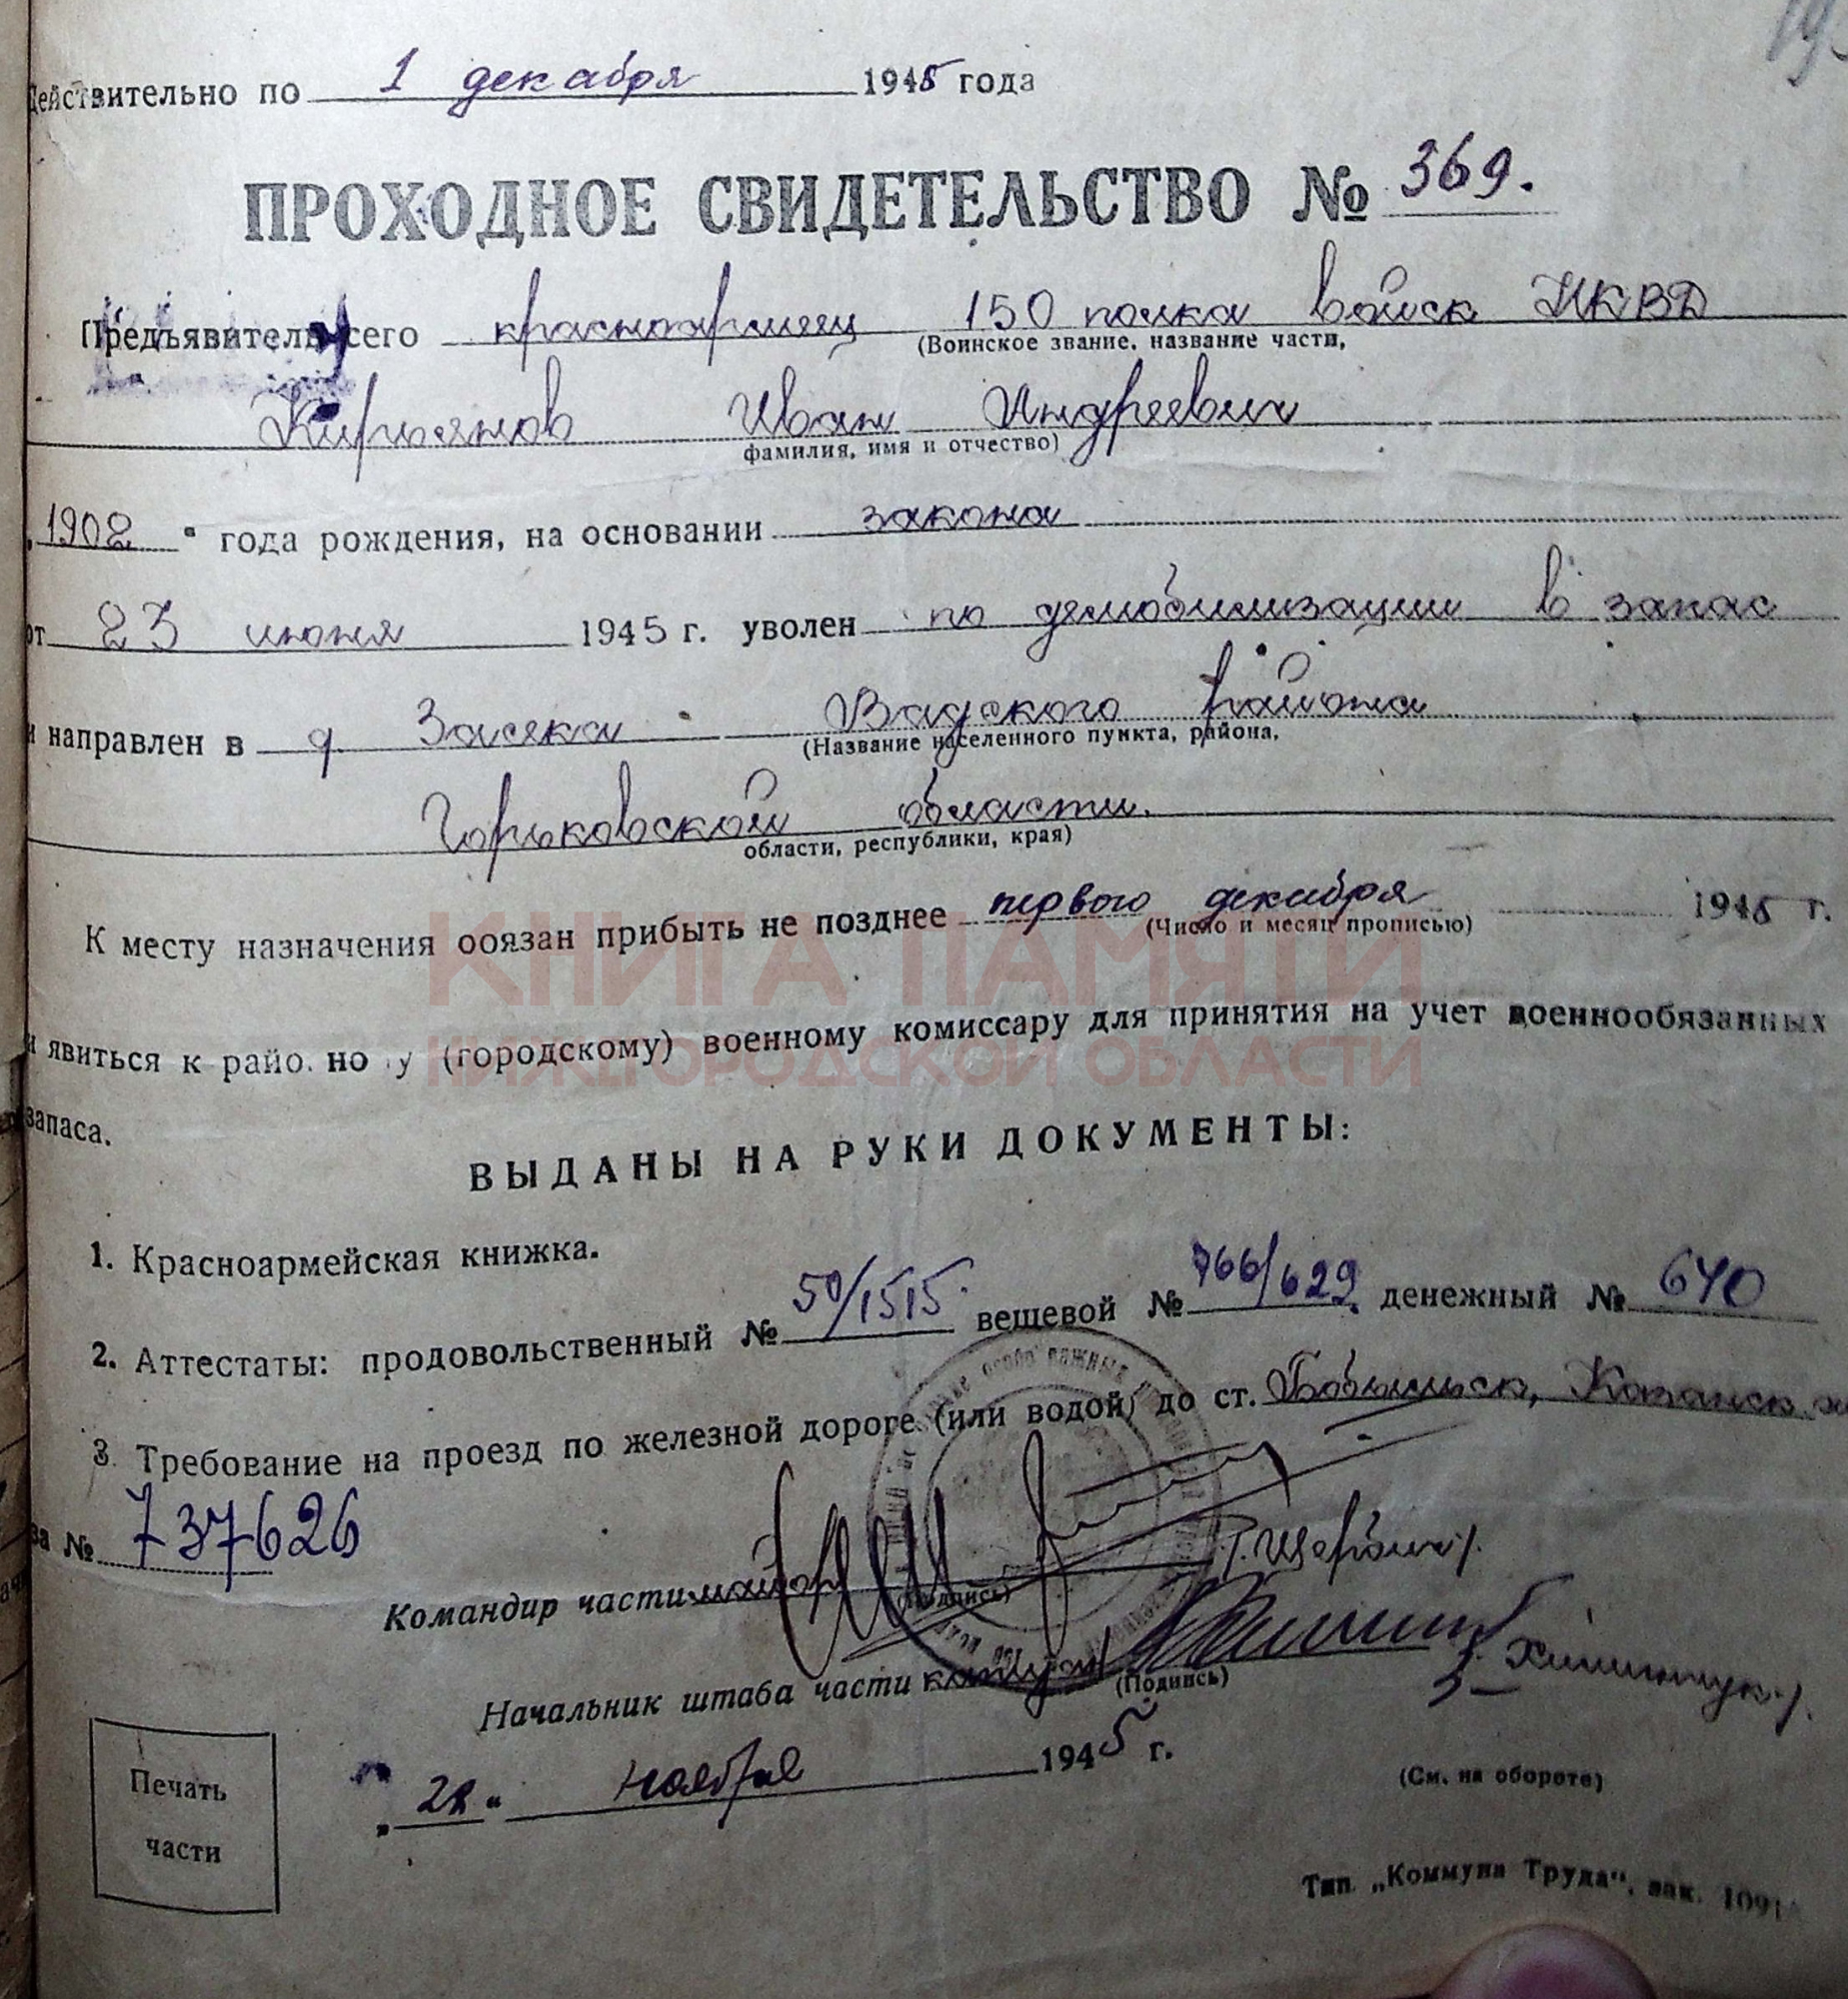 Действительно по 1 декабря 1945 года
ПРОХОДНОЕ СВИДЕТЕЛЬСТВО № 369.
Предъявитель сего красноармеец 150 полка войск НКВД
(Воинское звание, название части,
Кирьянов Иван Андреевич
фамилия, имя и отчество)
„1902" года рождения, на основании закона
от 23 июня 1945 г. уволен по демобилизации в запас
и направлен в д Засека Вадского района
(Название населенного пункта, района,
Горьковской области.
области, республики, края)
К месту назначения обязан прибыть не позднее первого декабря 1945 г.
(Число и месяц прописью)
КНИГА ПАМЯТИ
и явиться к райо. но у (городскому) военному комиссару для принятия на учет военнообязанных
НИЖЕГОРОДСКОЙ ОБЛАСТИ
запаса.
ВЫДАНЫ НА РУКИ ДОКУМЕНТЫ:
1. Красноармейская книжка.
2. Аттестаты: продовольственный № 50/1515 вещевой № 766/629 денежный № 640
3. Требование на проезд по железной дороге (или водой) до ст. Бобыльск, Казанск.
за № 737626
Командир части майор
(Подпись)
Начальник штаба части капитан
(Подпись)
„28" ноября 1945 г.
Печать
части
(См. на обороте)
Тип. „Коммуна Труда", зак. 1091